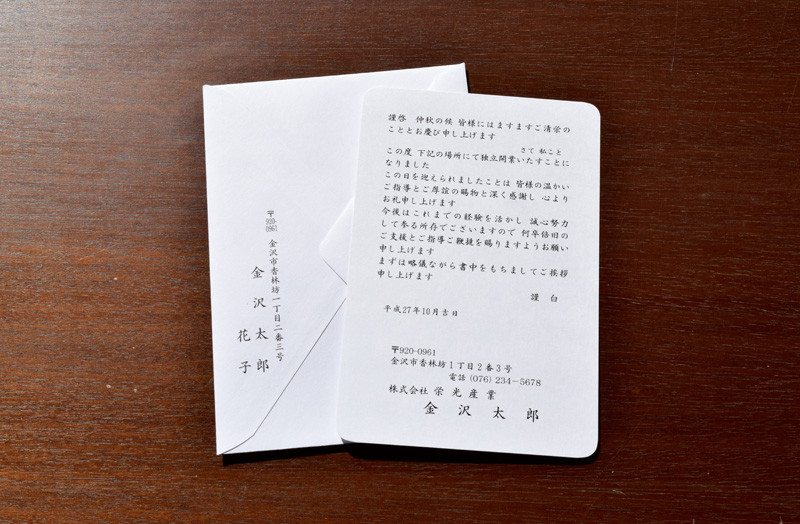 謹啓　仲秋の候 皆様にはますますご清栄の
こととお慶び申し上げます
さて 私こと
この度 下記の場所にて独立開業いたすことに
なりました
この日を迎えられましたことは 皆様の温かい
ご指導とご厚誼の賜物と深く感謝し 心より
お礼申し上げます
今後はこれまでの経験を活かし 誠心努力
して参る所存でございますので 何卒倍旧の
ご支援とご指導ご鞭撻を賜りますようお願い
申し上げます
まずは略儀ながら書中をもちましてご挨拶
申し上げます
謹　白
平成27年10月吉日
〒920-0961
金沢市香林坊1丁目2番3号
電話 (076) 234-5678
株式会社 栄光産業
金沢太郎
〒920-0961
金沢市香林坊一丁目二番三号
金沢太郎
花子